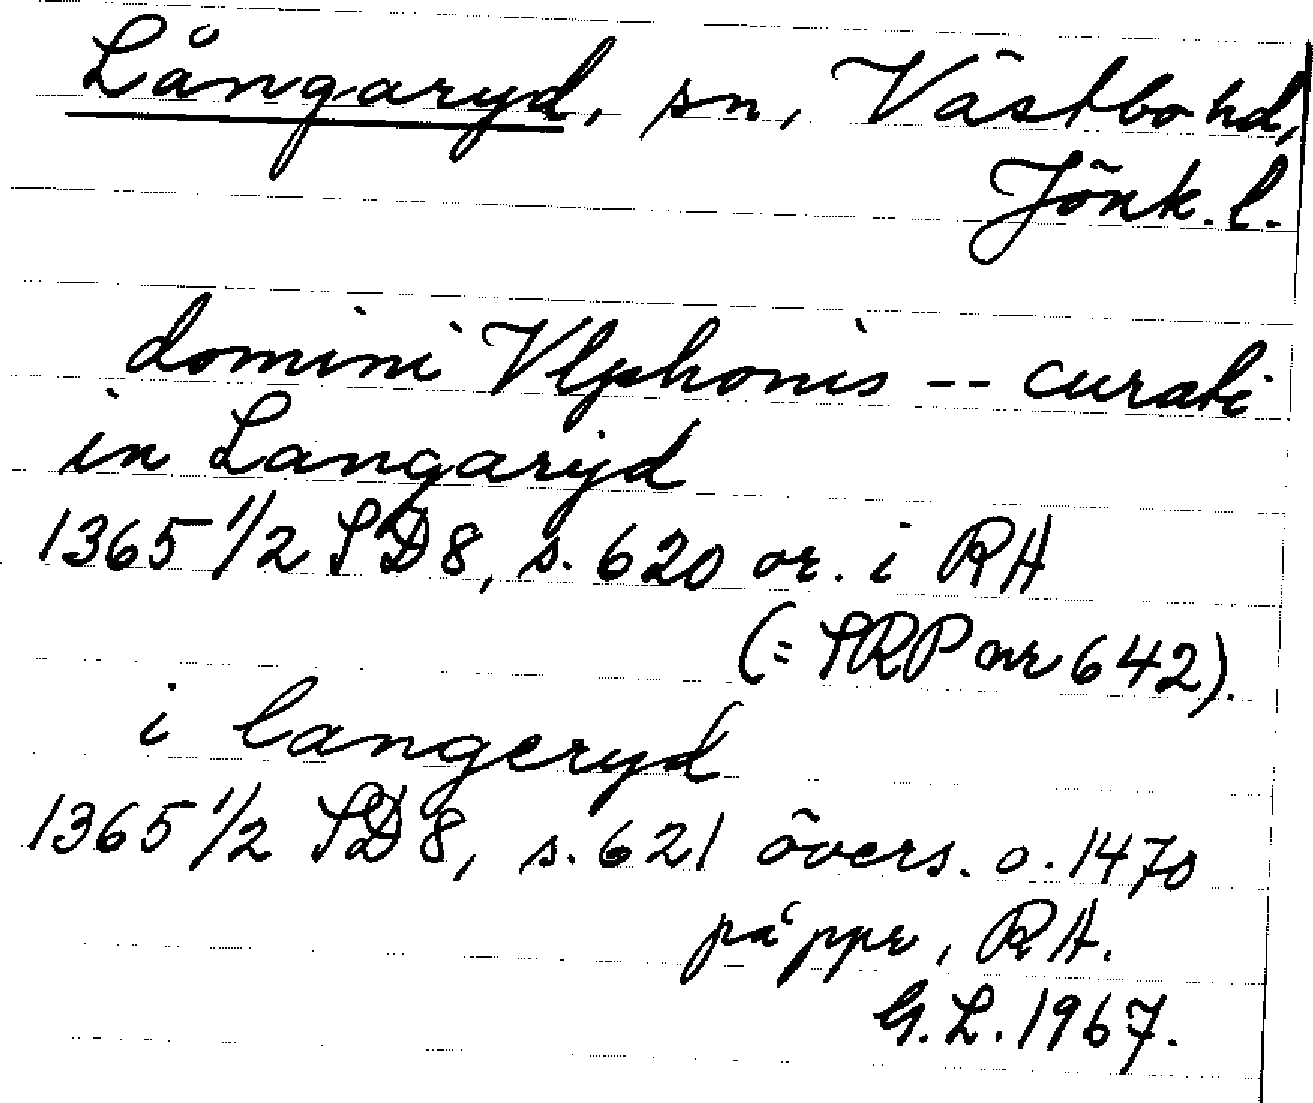 Långaryd, sn, Västbo hd,
Jönk. l.
domini Vlphonis -- curati
in Langarijd
1365 1/2 SD8, s. 620 or. i RA
(= SRP nr 642).
i langeryd
1365 1/2 SD8, s. 621 övers. o. 1470
på ppr, RA.
G. L. 1967.